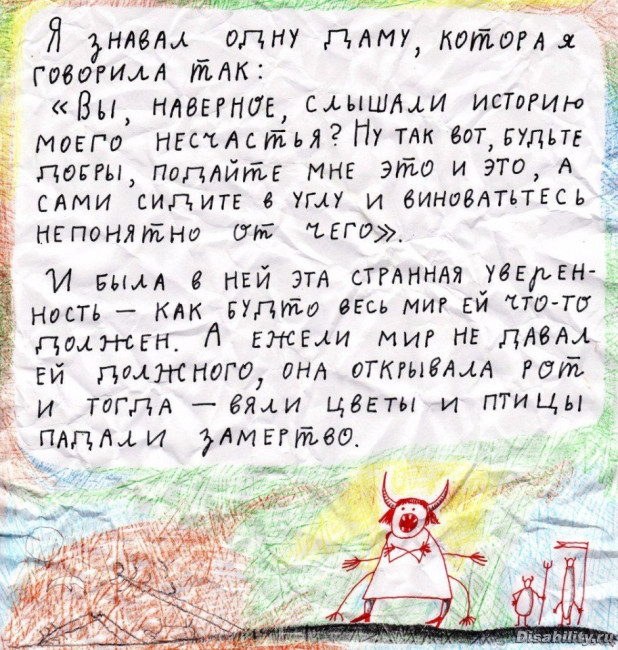 Я знавал одну даму, которая
говорила так:
«Вы, наверное, слышали историю
моего несчастья? Ну так вот, будьте
добры, подайте мне это и это, а
сами сидите в углу и виноватьтесь
непонятно от чего».
И была в ней эта странная уверен-
ность — как будто весь мир ей что-то
должен. А ежели мир не давал
ей должного, она открывала рот
и тогда — вяли цветы и птицы
падали замертво.
Disability.ru